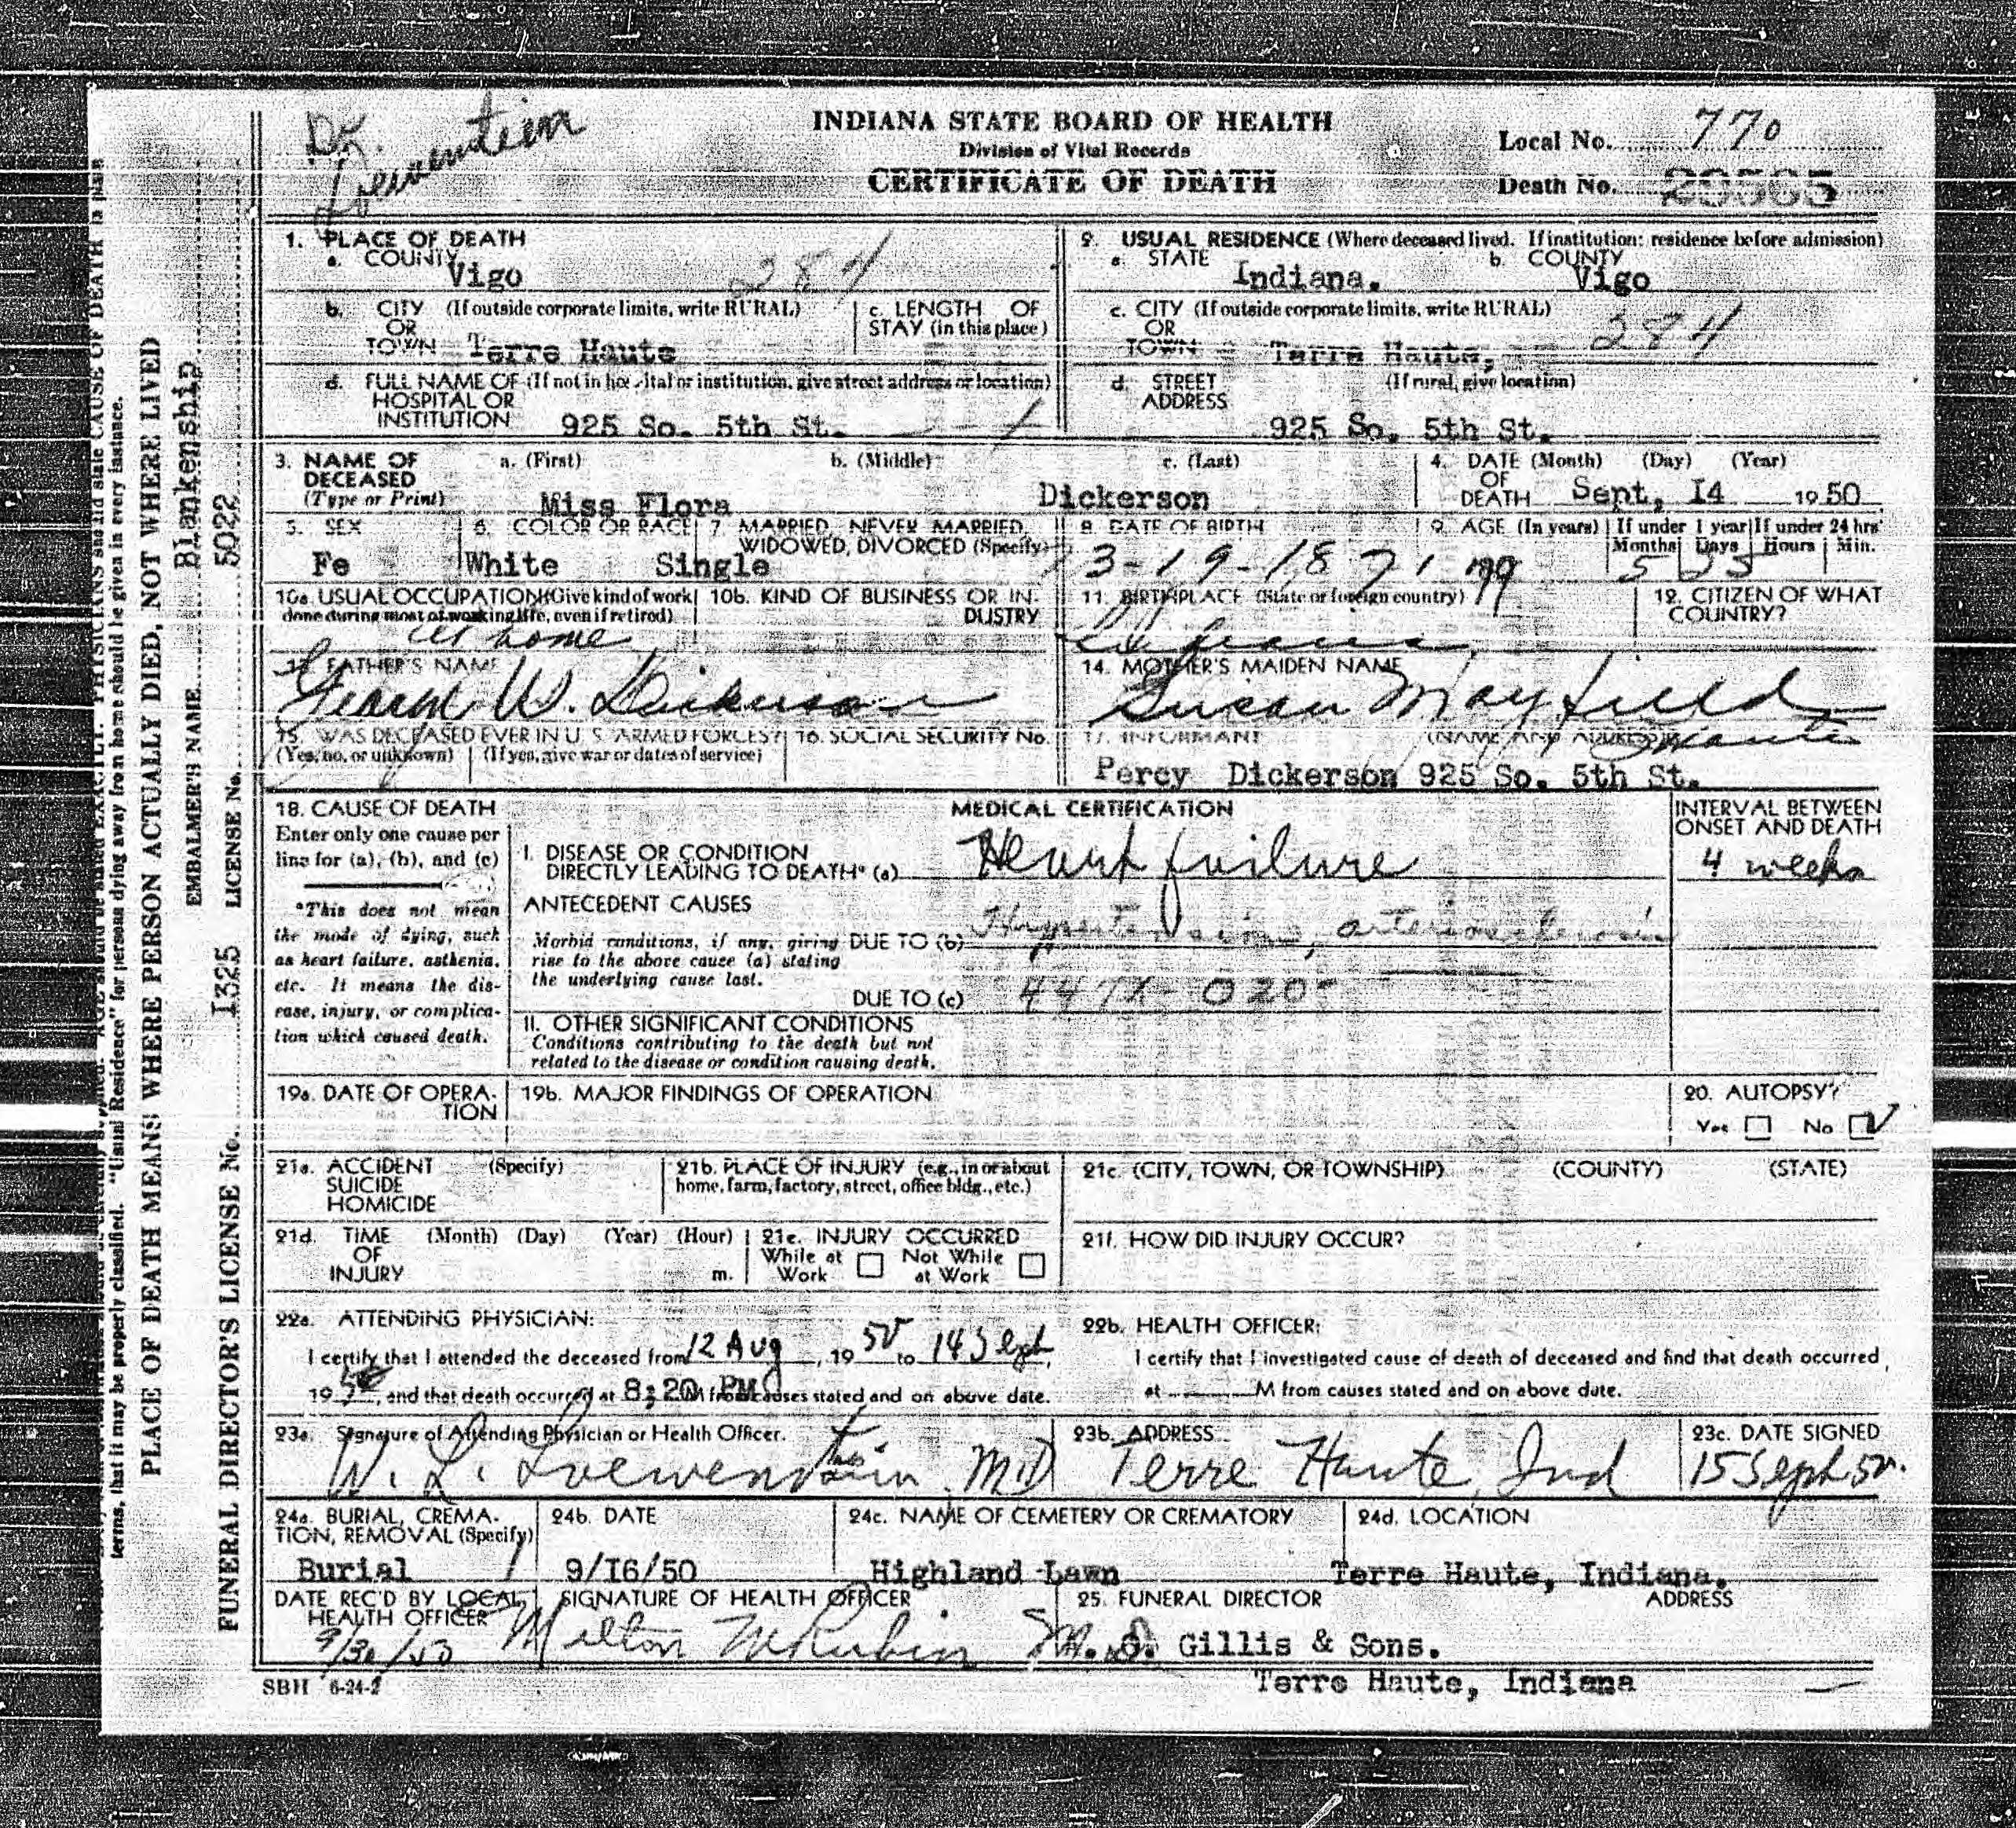 Dr.
Loewenstein
INDIANA STATE BOARD OF HEALTH
Division of Vital Records
CERTIFICATE OF DEATH
Local No. 770
Death No.
1. PLACE OF DEATH
a. COUNTY Vigo 284
b. CITY (If outside corporate limits, write RURAL) OR TOWN Terre Haute
c. LENGTH OF STAY (in this place)
d. FULL NAME OF (If not in hospital or institution, give street address or location) HOSPITAL OR INSTITUTION 925 So. 5th St.
2. USUAL RESIDENCE (Where deceased lived. If institution: residence before admission)
a. STATE Indiana. b. COUNTY Vigo
c. CITY (If outside corporate limits, write RURAL) OR TOWN Terre Haute, 284
d. STREET ADDRESS (If rural, give location) 925 So. 5th St.
3. NAME OF DECEASED (Type or Print) a. (First) b. (Middle) c. (Last)
Miss Flora Dickerson
4. DATE OF DEATH (Month) (Day) (Year) Sept, I4 1950
5. SEX Fe
6. COLOR OR RACE White
7. MARRIED, NEVER MARRIED, WIDOWED, DIVORCED (Specify) Single
8. DATE OF BIRTH 3-19-1871
9. AGE (In years) 79 If under 1 year Months 5 Days If under 24 hrs Hours Min.
10a. USUAL OCCUPATION (Give kind of work done during most of working life, even if retired) at home
10b. KIND OF BUSINESS OR INDUSTRY
11. BIRTHPLACE (State or foreign country)
12. CITIZEN OF WHAT COUNTRY?
13. FATHER'S NAME George W. Dickerson
14. MOTHER'S MAIDEN NAME Susan Mayfield
15. WAS DECEASED EVER IN U. S. ARMED FORCES? (Yes, no, or unknown) (If yes, give war or dates of service)
16. SOCIAL SECURITY No.
17. INFORMANT (NAME AND ADDRESS)
Percy Dickerson 925 So. 5th St.
18. CAUSE OF DEATH
Enter only one cause per line for (a), (b), and (c)
*This does not mean the mode of dying, such as heart failure, asthenia, etc. It means the disease, injury, or complication which caused death.
MEDICAL CERTIFICATION
INTERVAL BETWEEN ONSET AND DEATH
I. DISEASE OR CONDITION DIRECTLY LEADING TO DEATH* (a) Heart failure 4 weeks
ANTECEDENT CAUSES
Morbid conditions, if any, giving rise to the above cause (a) stating the underlying cause last.
DUE TO (b) Hypertension, arteriosclerosis
DUE TO (c) 447X-020
II. OTHER SIGNIFICANT CONDITIONS
Conditions contributing to the death but not related to the disease or condition causing death.
19a. DATE OF OPERATION
19b. MAJOR FINDINGS OF OPERATION
20. AUTOPSY? Yes No
21a. ACCIDENT SUICIDE HOMICIDE (Specify)
21b. PLACE OF INJURY (e.g., in or about home, farm, factory, street, office bldg., etc.)
21c. (CITY, TOWN, OR TOWNSHIP) (COUNTY) (STATE)
21d. TIME OF INJURY (Month) (Day) (Year) (Hour) m.
21e. INJURY OCCURRED While at Work Not While at Work
21f. HOW DID INJURY OCCUR?
22a. ATTENDING PHYSICIAN:
I certify that I attended the deceased from 12 Aug, 19 50 to 14 Sept,
19 50, and that death occurred at 8:20 PM M from causes stated and on above date.
22b. HEALTH OFFICER:
I certify that I investigated cause of death of deceased and find that death occurred
at M from causes stated and on above date.
23a. Signature of Attending Physician or Health Officer.
W. L. Loewenstein M.D
23b. ADDRESS Terre Haute, Ind
23c. DATE SIGNED 15 Sept 50.
24a. BURIAL, CREMATION, REMOVAL (Specify) Burial
24b. DATE 9/I6/50
24c. NAME OF CEMETERY OR CREMATORY Highland Lawn
24d. LOCATION Terre Haute, Indiana.
DATE REC'D BY LOCAL HEALTH OFFICER 9/30/50
SIGNATURE OF HEALTH OFFICER Milton
25. FUNERAL DIRECTOR ADDRESS
Gillis & Sons.
Terre Haute, Indiana
SBH 6-24-
terms, that it may be properly classified. "Usual Residence" for persons dying away from home should be given in every instance.
PLACE OF DEATH MEANS WHERE PERSON ACTUALLY DIED, NOT WHERE LIVED
EMBALMER'S NAME Blankenship
FUNERAL DIRECTOR'S LICENSE No. I325 LICENSE No. 5022